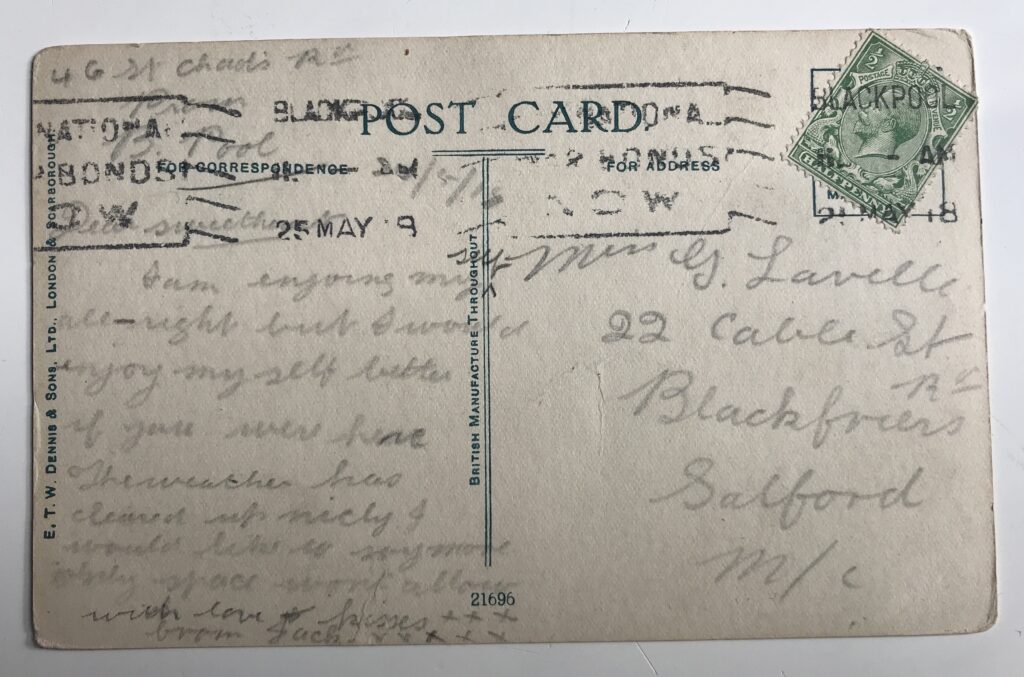 46 St Chads Rd
B. Pool
POST CARD
FOR CORRESPONDENCE
FOR ADDRESS
NATIONA
BONDS
OW
BLACKPOOL
AM
25 MAY 8
NATIONA
BONDS
NOW
BLACKPOOL
AM
MAY 18
POSTAGE
HALFPENNY
Dear sweetheart
I am enjoing my
self
all-right but I would
enjoy my self better
if you were here
The weather has
cleared up nicly I
would like to say more
only space wont allow
with love & kisses + + +
from Jack x x x x x
E. T. W. DENNIS & SONS, LTD., LONDON & SCARBOROUGH.
BRITISH MANUFACTURE THROUGHOUT
21696
Miss G. Lavelle
22 Cable St
Blackfriers Rd
Salford
M/c